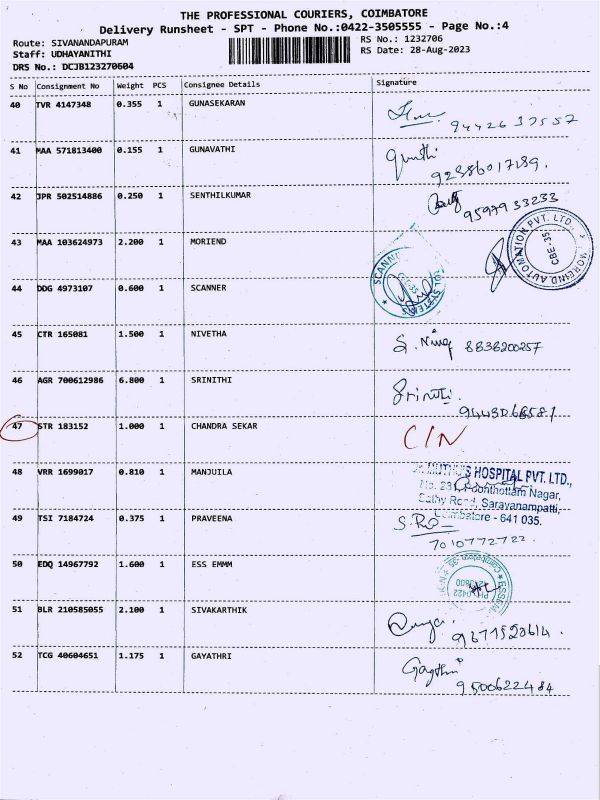 THE PROFESSIONAL COURIERS, COIMBATORE
Delivery Runsheet - SPT - Phone No.:0422-3505555 - Page No.:4
Route: SIVANANDAPURAM
RS No.: 1232706
Staff: UDHAYANITHI
RS Date: 28-Aug-2023
DRS No.: DCJB123270604
S No Consignment No Weight PCS Consignee Details Signature
40 TVR 4147348 0.355 1 GUNASEKARAN
9442637557
41 MAA 571813400 0.155 1 GUNAVATHI
42 JPR 502514886 0.250 1 SENTHILKUMAR
9597933233
43 MAA 103624973 2.200 1 MORIEND
MOREIND AUTOMATION PVT. LTD.,
CBE-35
44 DDG 4973107 0.600 1 SCANNER
45 CTR 165081 1.500 1 NIVETHA
8838200257
46 AGR 700612986 6.800 1 SRINITHI
Srinithi
47 STR 183152 1.000 1 CHANDRA SEKAR
C/N
48 VRR 1699017 0.810 1 MANJUILA
HOSPITAL PVT. LTD.,
Poonthottam Nagar,
Sathy Road, Saravanampatti,
Coimbatore - 641 035.
49 TSI 7184724 0.375 1 PRAVEENA
7010772722
50 EDQ 14967792 1.600 1 ESS EMMM
51 BLR 210585055 2.100 1 SIVAKARTHIK
9671520614
52 TCG 40604651 1.175 1 GAYATHRI
Gayathri
9500622484